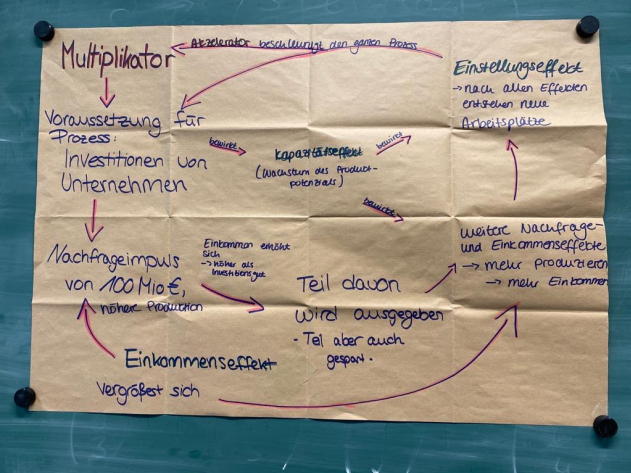 Multiplikator
Akzelerator beschleunigt den ganzen Prozess
Einstellungseffekt
→ nach allen Effekten
entstehen neue
Arbeitsplätze
Voraussetzung für
Prozess:
Investitionen von
Unternehmen
bewirkt
Kapazitätseffekt
(Wachstum des Produkt-
potenzials)
bewirkt
bewirkt
Nachfrageimpuls
von 100 Mio €,
höhere Production
Einkommen erhöht
sich
→ höher als
Investitionsgut
Teil davon
wird ausgegeben
- Teil aber auch
gespart.
weitere Nachfrage-
und Einkommenseffekte
→ mehr produzieren
→ mehr Einkommen
Einkommenseffekt
vergrößest sich